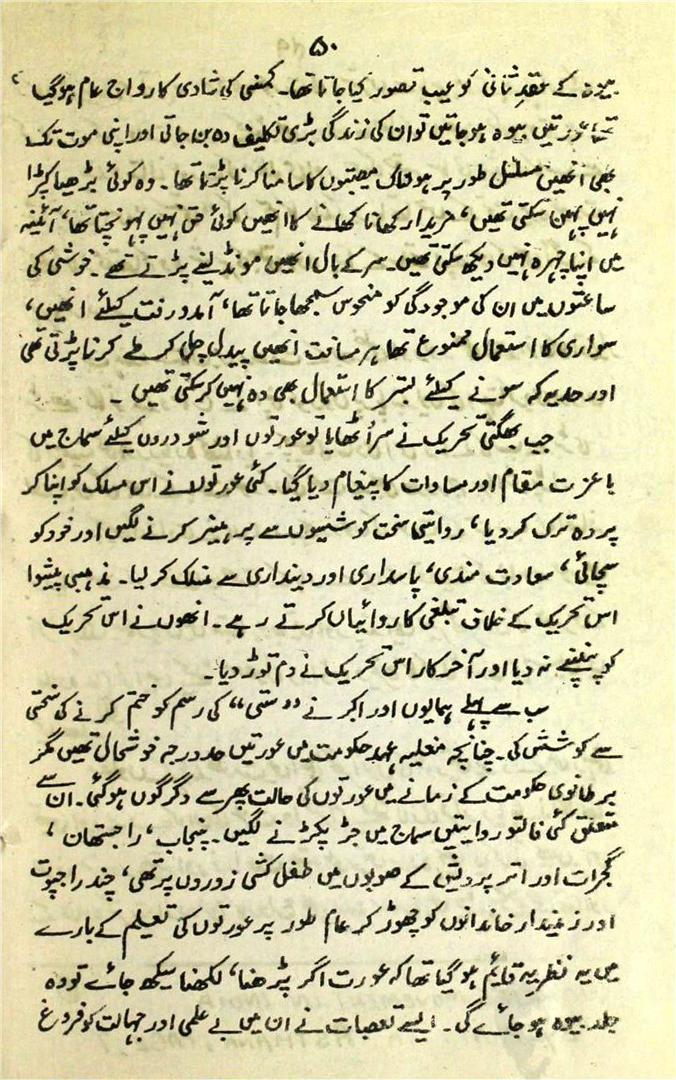 ۵۰
بیوہ کے عقدِ ثانی کو عیب تصور کیا جاتا تھا۔ کمسنی کی شادی کا رواج عام ہو گیا
تھا عورتیں بیوہ ہو جاتیں تو ان کی زندگی بڑی تکلیف دہ بن جاتی اور اپنی موت تک
بھی انھیں مسلسل طور پر ہولناک مصیبتوں کا سامنا کرنا پڑتا تھا۔ وہ کوئی بڑھیا کپڑا
نہیں پہن سکتی تھیں، مزیدار کھانا کھانے کا انھیں کوئی حق نہیں پہونچتا تھا، آئینہ
میں اپنا چہرہ نہیں دیکھ سکتی تھیں۔ سر کے بال انھیں مونڈ لینے پڑتے تھے۔ خوشی کی
ساعتوں میں ان کی موجودگی کو منحوس سمجھا جاتا تھا، آمدورفت کیلئے انھیں،
سواری کا استعمال ممنوع تھا ہر مسافت انھیں پیدل چل کر طے کرنا پڑتی تھی
اور حد یہ کہ سونے کیلئے بستر کا استعمال بھی وہ نہیں کر سکتی تھیں۔
جب بھگتی تحریک نے سر اُٹھایا تو عورتوں اور شودروں کیلئے سماج میں
باعزت مقام اور مساوات کا پیغام دیا گیا۔ کئی عورتوں نے اس مسلک کو اپنا کر
پردہ ترک کر دیا، روایتی سخت کوشیوں سے پرہیز کرنے لگیں اور خود کو
سچائی، سعادت مندی، پاسداری اور دینداری سے منسلک کر لیا۔ مذہبی پیشوا
اس تحریک کے خلاف تبلیغی کاروائیاں کرتے رہے۔ انھوں نے اس تحریک
کو پنپنے نہ دیا اور آخر کار اس تحریک نے دم توڑ دیا۔
سب سے پہلے ہمایوں اور اکبر نے "ستی" کی رسم کو ختم کرنے کی سختی
سے کوشش کی۔ چنانچہ مغلیہ عہدِ حکومت میں عورتیں حد درجہ خوشحال تھیں مگر
برطانوی حکومت کے زمانے میں عورتوں کی حالت پھر سے دگرگوں ہو گئی۔ ان سے
متعلق کئی فالتو روایتیں سماج میں جڑ پکڑنے لگیں۔ پنجاب، راجستھان،
گجرات اور اتر پردیش کے صوبوں میں طفل کشی زوروں پر تھی، چند راجپوت
اور زمیندار خاندانوں کو چھوڑ کر عام طور پر عورتوں کی تعلیم کے بارے
میں یہ نظریہ قایم ہو گیا تھا کہ عورت اگر پڑھنا، لکھنا سیکھ جائے تو وہ
جلد بیوہ ہو جائے گی۔ ایسے تعصبات نے ان میں بے علمی اور جہالت کو فروغ